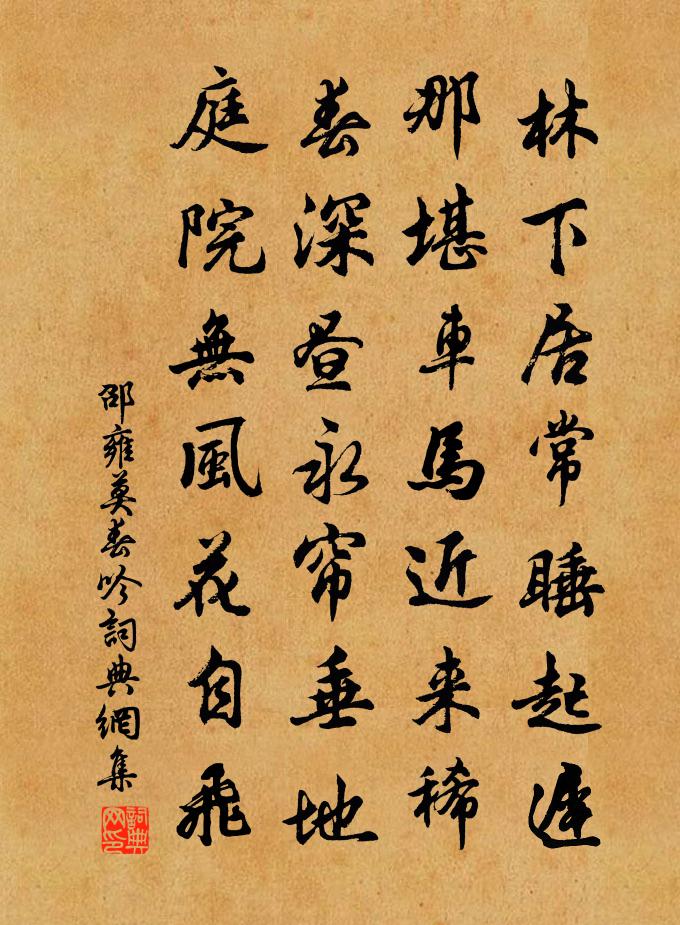 林下居常睡起遲
那堪車馬近来稀
春深昼永帘垂地
庭院無風花自飛
邵雍莫春吟詞典網集
詞典网印